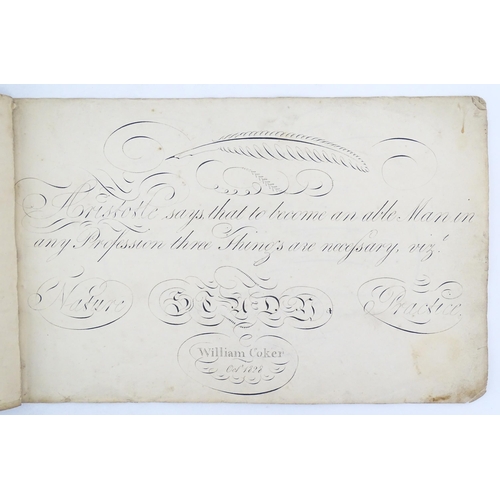 Aristotle says, that to become an able Man in
any Profession three Things are neceſsary, vizt.
Nature STUDY. Practice
William Coker
Octr 1824